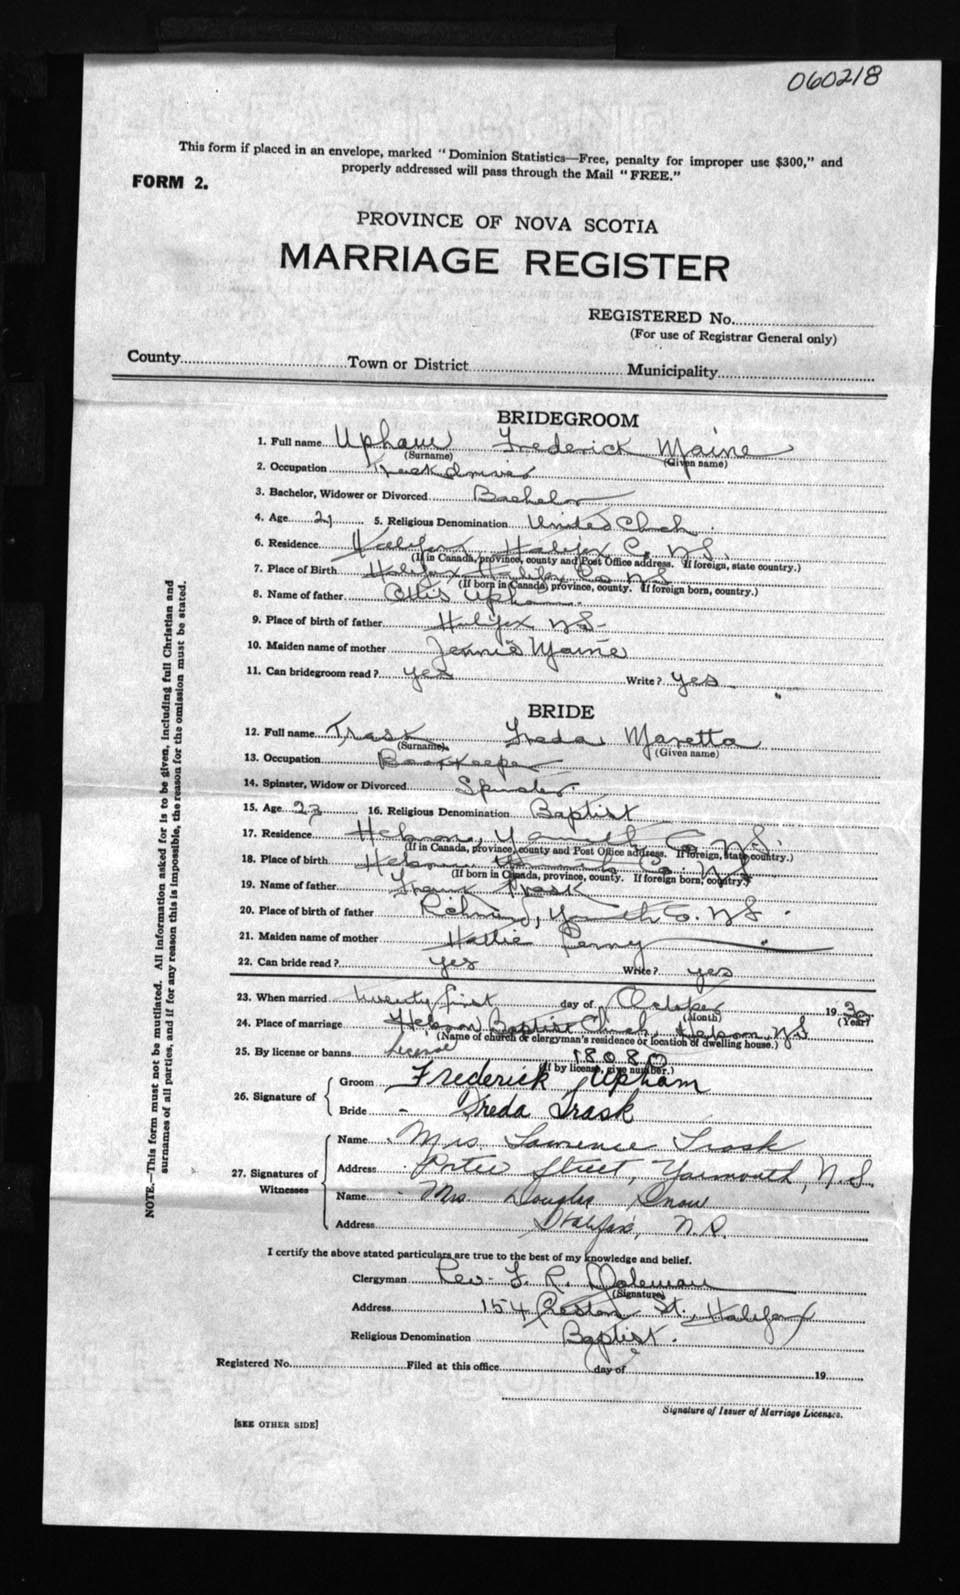 060218
This form if placed in an envelope, marked "Dominion Statistics—Free, penalty for improper use $300," and
properly addressed will pass through the Mail "FREE."
FORM 2.
PROVINCE OF NOVA SCOTIA
MARRIAGE REGISTER
REGISTERED No.
(For use of Registrar General only)
County Town or District Municipality
BRIDEGROOM
1. Full name Upham Frederick Maine
(Surname) (Given name)
2. Occupation Truck driver
3. Bachelor, Widower or Divorced Bachelor
4. Age 21 5. Religious Denomination United Chch.
6. Residence Halifax, Halifax Co. N.S.
(If in Canada, province, county and Post Office address. If foreign, state country.)
7. Place of Birth Halifax Halifax Co. N.S.
(If born in Canada, province, county. If foreign born, country.)
8. Name of father Upham
9. Place of birth of father Halifax N.S.
10. Maiden name of mother Jennie Maine
11. Can bridegroom read? yes Write? yes
BRIDE
12. Full name Trask Freda Maretta
(Surname) (Given name)
13. Occupation Bookkeeper
14. Spinster, Widow or Divorced Spinster
15. Age 23 16. Religious Denomination Baptist
17. Residence Hebron, Yarmouth Co. N.S.
(If in Canada, province, county and Post Office address. If foreign, state country.)
18. Place of birth Hebron Yarmouth Co. N.S.
(If born in Canada, province, county. If foreign born, country.)
19. Name of father Trask
20. Place of birth of father Richmond, Yarmouth Co. N.S.
21. Maiden name of mother Hattie Perry
22. Can bride read? yes Write? yes
23. When married twenty first day of October 1930
(Month) (Year)
24. Place of marriage Hebron Baptist Church, Hebron, N.S.
(Name of church or clergyman's residence or location of dwelling house.)
25. By license or banns License 18080
(If by license, give number.)
26. Signature of
Groom Frederick Upham
Bride - Freda Trask
27. Signatures of
Witnesses
Name Mrs. Lawrence Trask
Address Porter Street, Yarmouth, N.S.
Name Mrs Douglas Snow
Address Halifax, N.S.
I certify the above stated particulars are true to the best of my knowledge and belief.
Clergyman Rev. F. R.
(Signature)
Address 154 St., Halifax
Religious Denomination Baptist.
Registered No. Filed at this office day of 19
Signature of Issuer of Marriage Licenses.
[SEE OTHER SIDE]
NOTE.—This form must not be mutilated. All information asked for is to be given, including full Christian and
surnames of all parties, and if for any reason this is impossible, the reason for the omission must be stated.